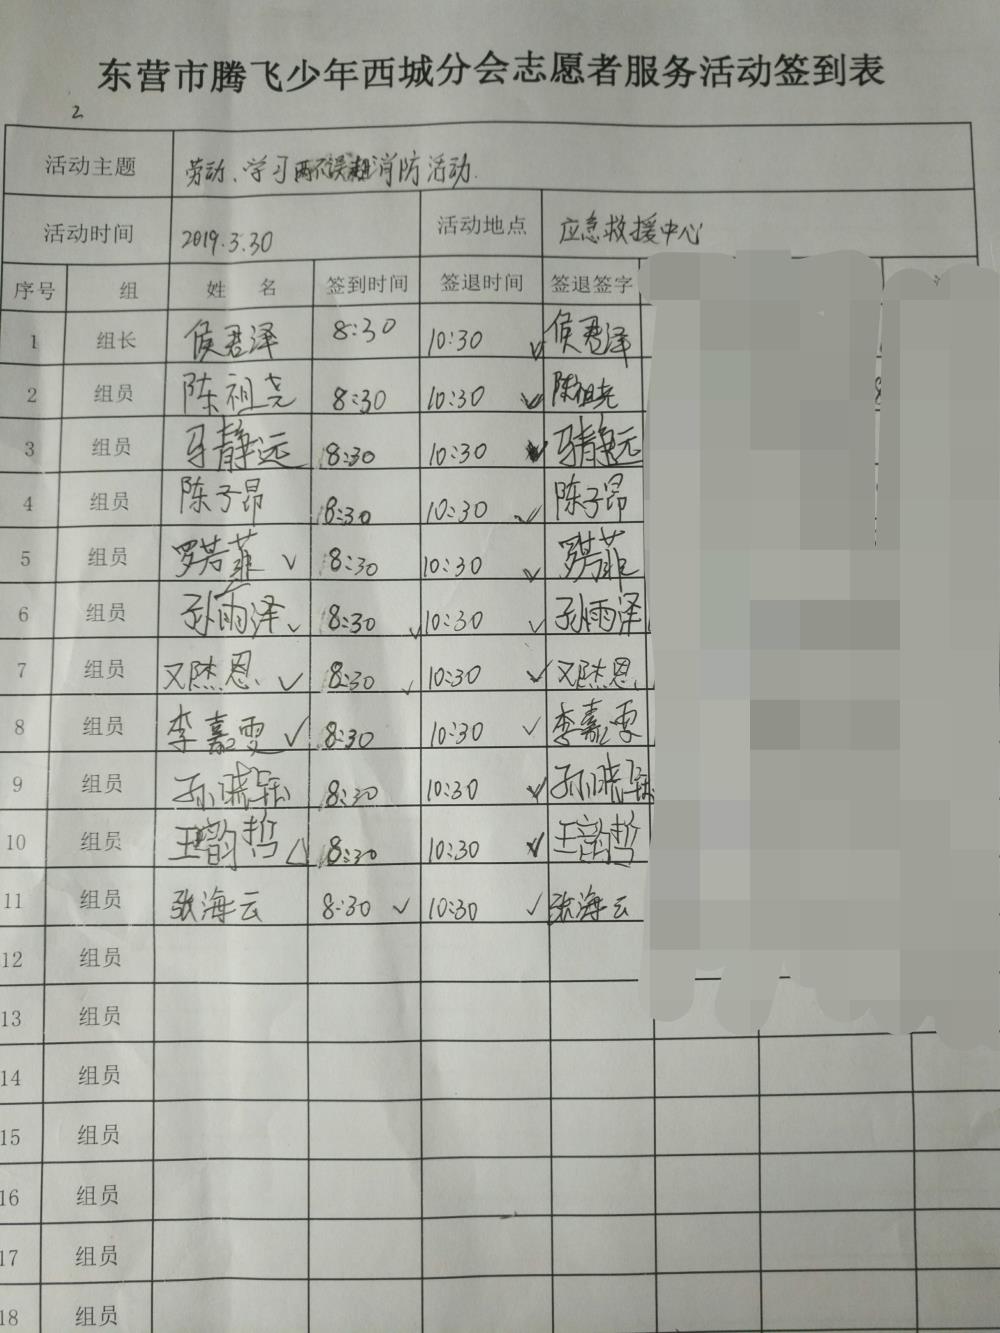 东营市腾飞少年西城分会志愿者服务活动签到表
2
活动主题 劳动、学习两不误 消防活动.
活动时间 2019.3.30 活动地点 应急救援中心
序号 组 姓 名 签到时间 签退时间 签退签字
1 组长 侯君泽 8:30 10:30 √ 侯君泽
2 组员 陈祖尧 8:30 10:30 √ 陈祖尧
3 组员 马静远 8:30 10:30 马静远
4 组员 陈子昂 8:30 10:30 √ 陈子昂
5 组员 罗若菲 √ 8:30 10:30 √ 罗若菲
6 组员 孙雨泽 √ 8:30 √ 10:30 √ 孙雨泽
7 组员 恩 √ 8:30 √ 10:30 √ 恩
8 组员 李嘉雯 √ 8:30 10:30 √ 李嘉雯
9 组员 孙晓 8:30 10:30 √ 孙晓
10 组员 王韵哲 √ 8:30 10:30 √ 王韵哲
11 组员 张海云 8:30 √ 10:30 √ 张海云
12 组员
13 组员
14 组员
15 组员
16 组员
17 组员
18 组员